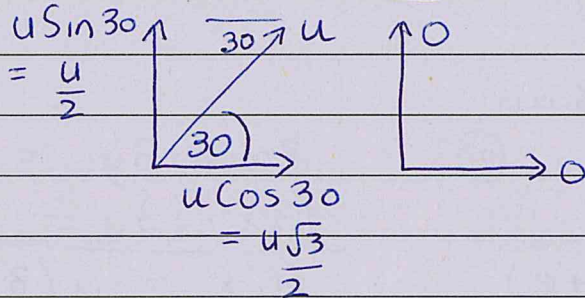 u Sin 30
= u/2
30
u
0
30
0
u Cos 30
= u√3/2